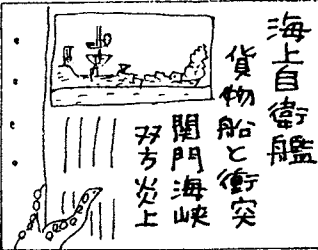 海上自衛艦
貨物船と衝突
関門海峡
双方炎上